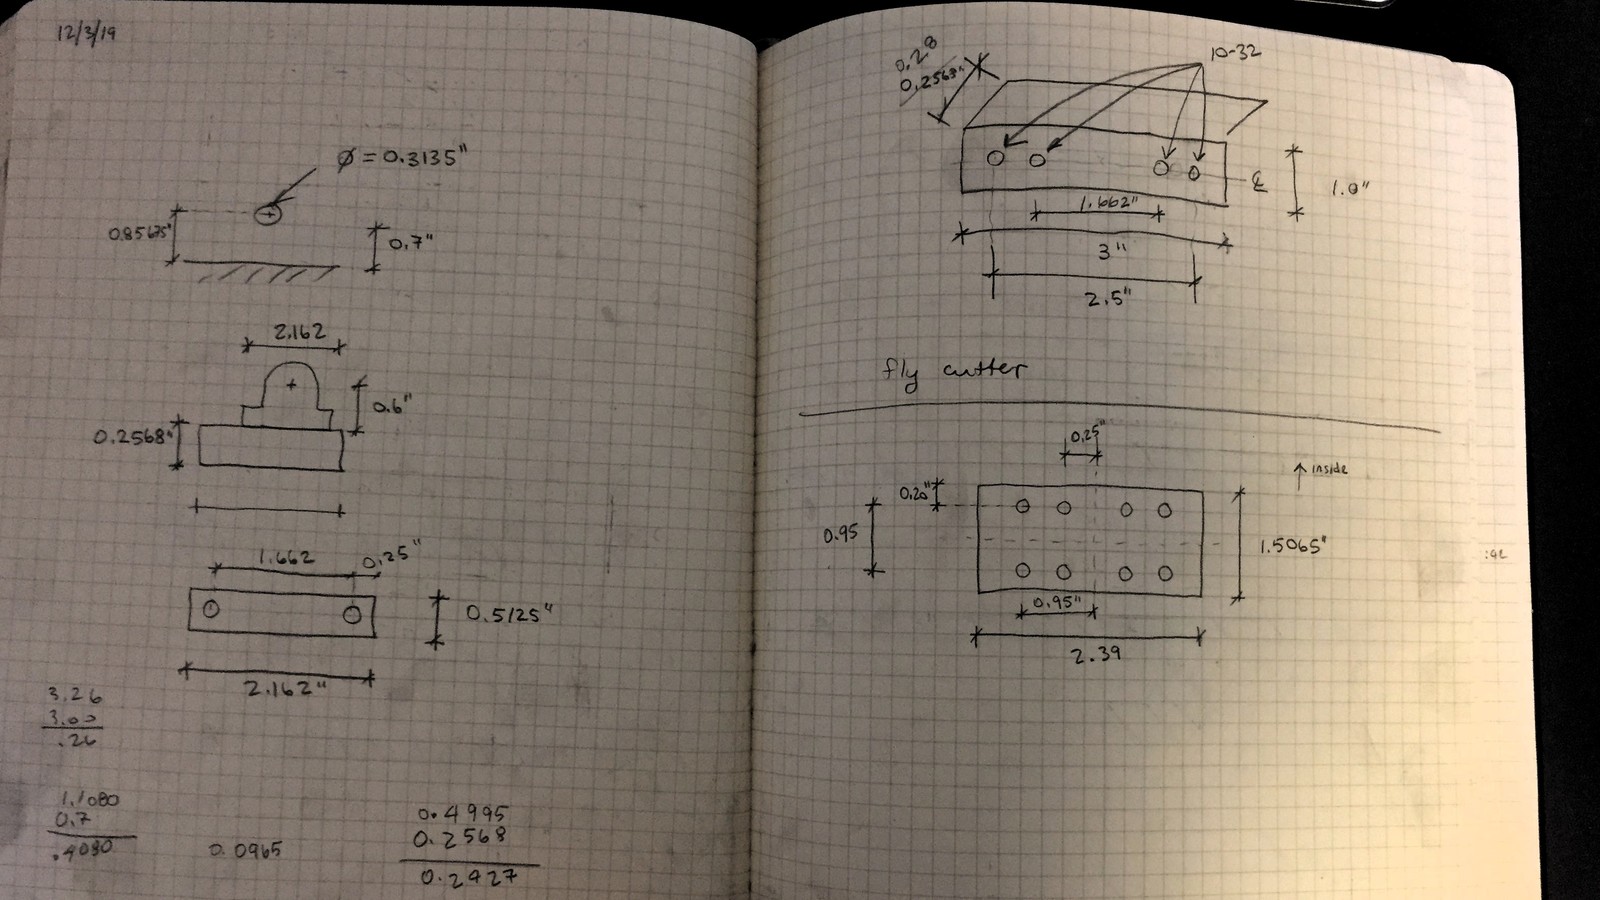 12/3/19
Ø = 0.3135"
0.85675"
0.7"
2.162
0.6"
0.2568"
1.662
0.25"
0.5125"
2.162"
3.26
3.00
.26
1.1080
0.7
.4080
0.0965
0.4995
0.2568
0.2427
0.28
0.2568"
10-32
℄
1.0"
1.662"
3"
2.5"
fly cutter
0.25"
↑ inside
0.20"
0.95
1.5065"
0.95"
2.39